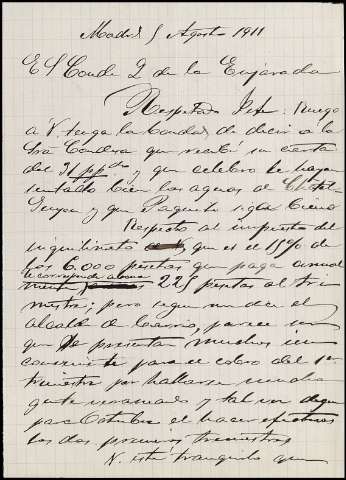 Madrid 5 Agosto 1911
El Conde 2 de la Enjarada
Respetado Jefe: Ruego
á V. tenga la bondad de decir a la
Sra Condesa que recibí su carta
del 31 pp do y que celebro le hayan
sentado bien las aguas de
y que Paquito siga bien
Respecto al impuesto del
inquilinato que es el 15% de
las 6.000 pesetas que paga anual
mente le corresponde abonar 225 pesetas al tri
mestre; pero segun me dice el
alcalde de barrio, parece ser
que se presentan muchos in
convenientes para el cobro del 1er
trimestre por hallarse mucha
gente veraneando y tal vez dejen
para Octubre el hacer efectivos
los dos primeros trimestres
V. esté tranquilo que